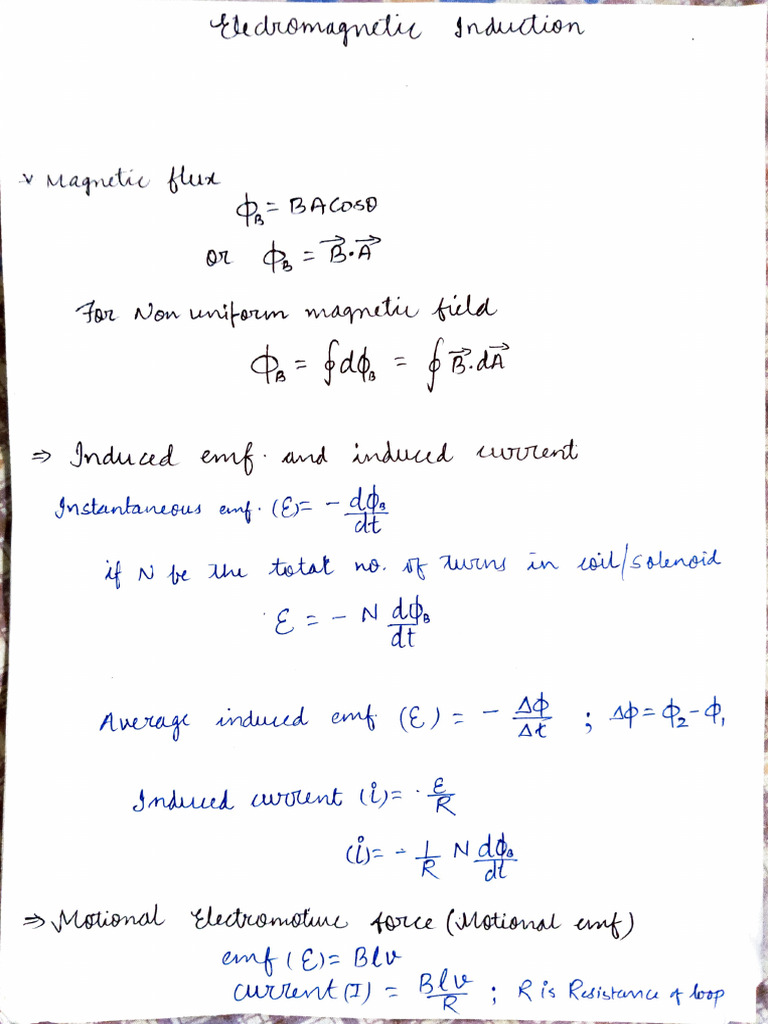 Electromagnetic Induction
Magnetic flux
ϕ_B = BA cosθ
or ϕ_B = B⃗·A⃗
For Non uniform magnetic field
ϕ_B = ∮dϕ_B = ∮B⃗·dA⃗
⇒ Induced emf. and induced current
Instantaneous emf. (ε) = - dϕ_B/dt
if N be the total no. of turns in coil/solenoid
ε = - N dϕ_B/dt
Average induced emf (ε) = - Δϕ/Δt ; Δϕ = ϕ₂ - ϕ₁
Induced current (i) = ε/R
(i) = - 1/R N dϕ_B/dt
⇒ Motional Electromotive force (Motional emf)
emf (ε) = Blv
current (I) = Blv/R ; R is Resistance of loop